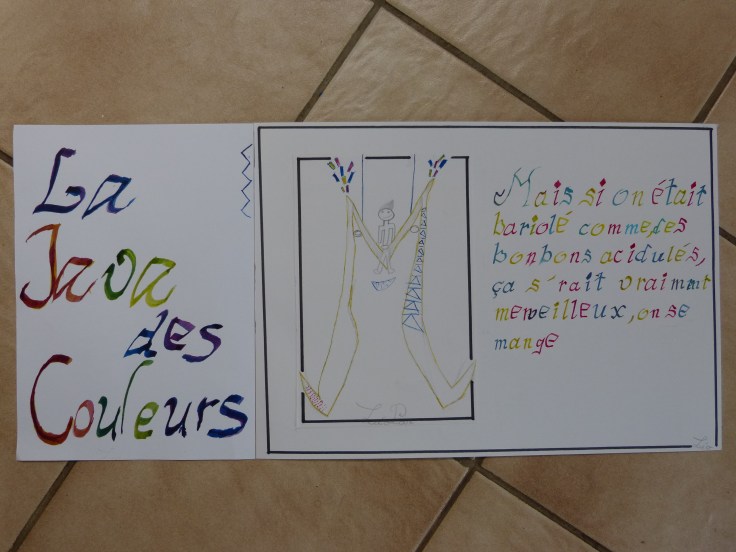 La
Java
des
Couleurs
Mais si on était
bariolé comme des
bonbons acidulés,
ça s'rait vraiment
merveilleux, on se
mange